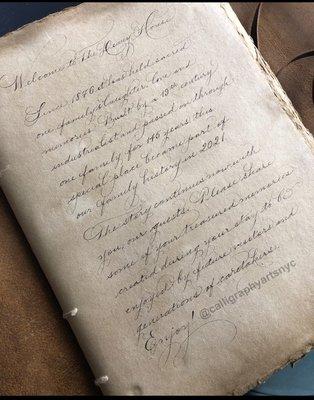 Welcome to The Henry House
Since 1876 it has held sacred
one family's laughter, love and
memories. Built by a 19th century
industrialist and passed on through
one family for 145 years this
special place became part of
our family history in 2021.
The story continues now with
you, our guests. Please share
some of your treasured memories
created during your stay to be
enjoyed by future visitors and
generations of caretakers.
Enjoy!
@calligraphyartsnyc